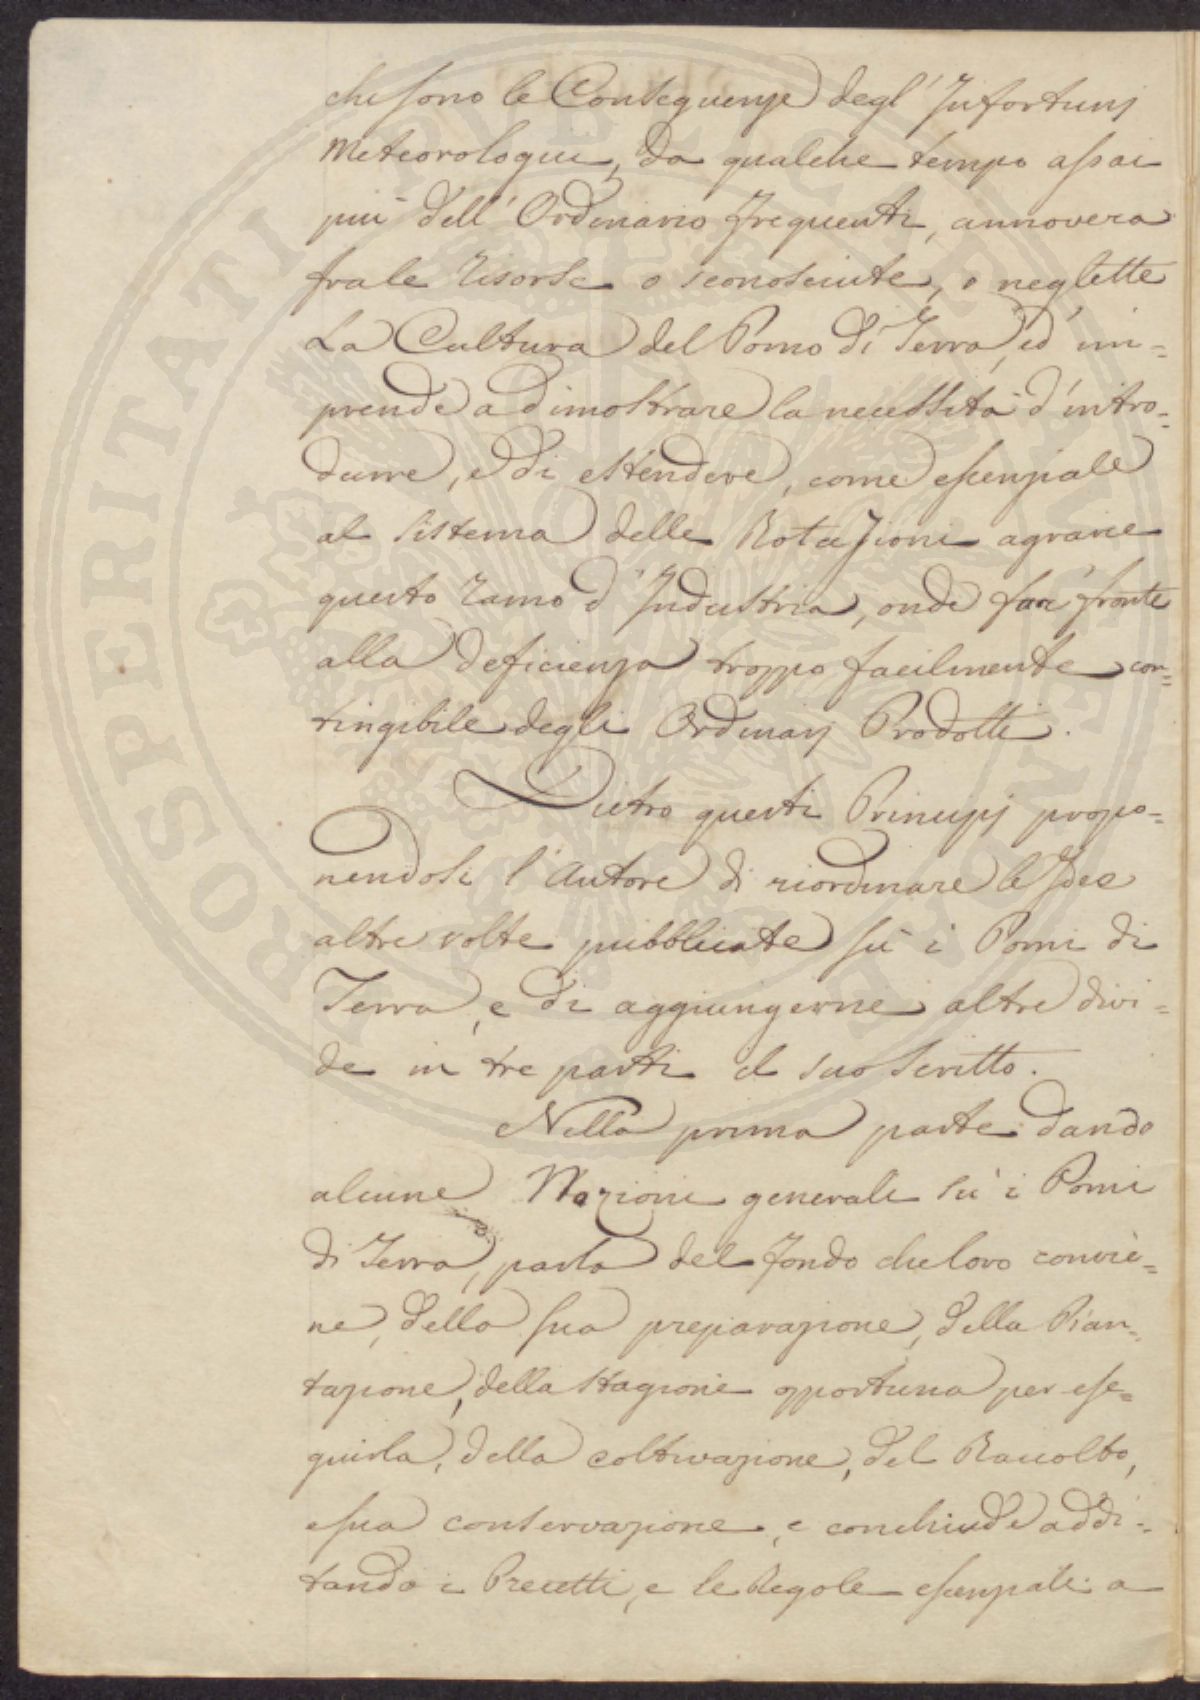 che sono le Conseguenze degl' Infortunj
Meteorologici, da qualche tempo assai
più dell' Ordinario frequenti, annovera
fra le risorse o sconosciute, o neglette
La Cultura del Pomo di Terra, ed im=
prende a dimostrare la necessità d'intro=
durre, e di estendere, come essenziale
al sistema delle Rotazioni agrarie
questo ramo d' Industria, onde far fronte
alla deficienza troppo facilmente con=
tingibile degli Ordinarj Prodotti.
Dietro questi Principj propo=
nendosi l' Autore di riordinare le Idee
altre volte pubblicate su i Pomi di
Terra, e di aggiungerne altre divi=
de in tre parti il suo scritto.
Nella prima parte dando
alcune Nozioni generali su i Pomi
di Terra, parla del fondo che loro convie=
ne, della sua preparazione, della Pian=
tazione, della stagione opportuna per ese=
guirla, della coltivazione, del Raccolto,
e sua conservazione, e conchiude addi=
tando i Precetti, e le Regole essenziali a
PROSPERITATI PUBLICAE